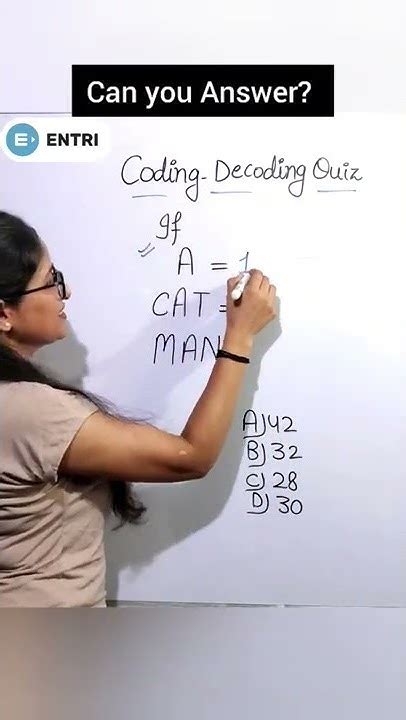 Can you Answer?
ENTRI
Coding-Decoding Quiz
If
A = 1
CAT =
MAN
A) 42
B) 32
C) 28
D) 30